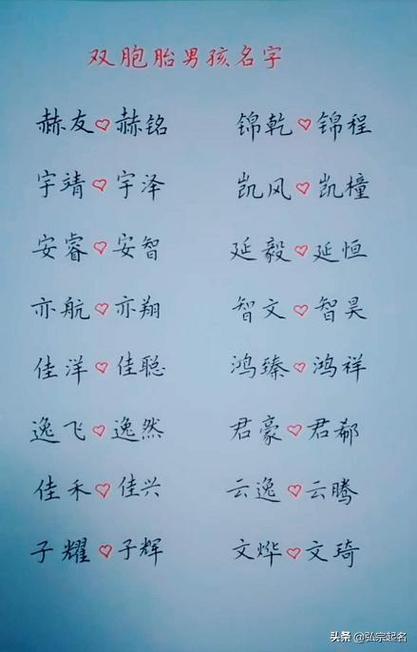 双胞胎男孩名字
赫友♡赫铭 锦乾♡锦程
宇靖♡宇泽 凯风♡凯橦
安睿♡安智 延毅♡延恒
亦航♡亦翔 智文♡智昊
佳洋♡佳聪 鸿臻♡鸿祥
逸飞♡逸然 君豪♡君郗
佳禾♡佳兴 云逸♡云腾
子耀♡子辉 文烨♡文琦
头条 @弘宗起名